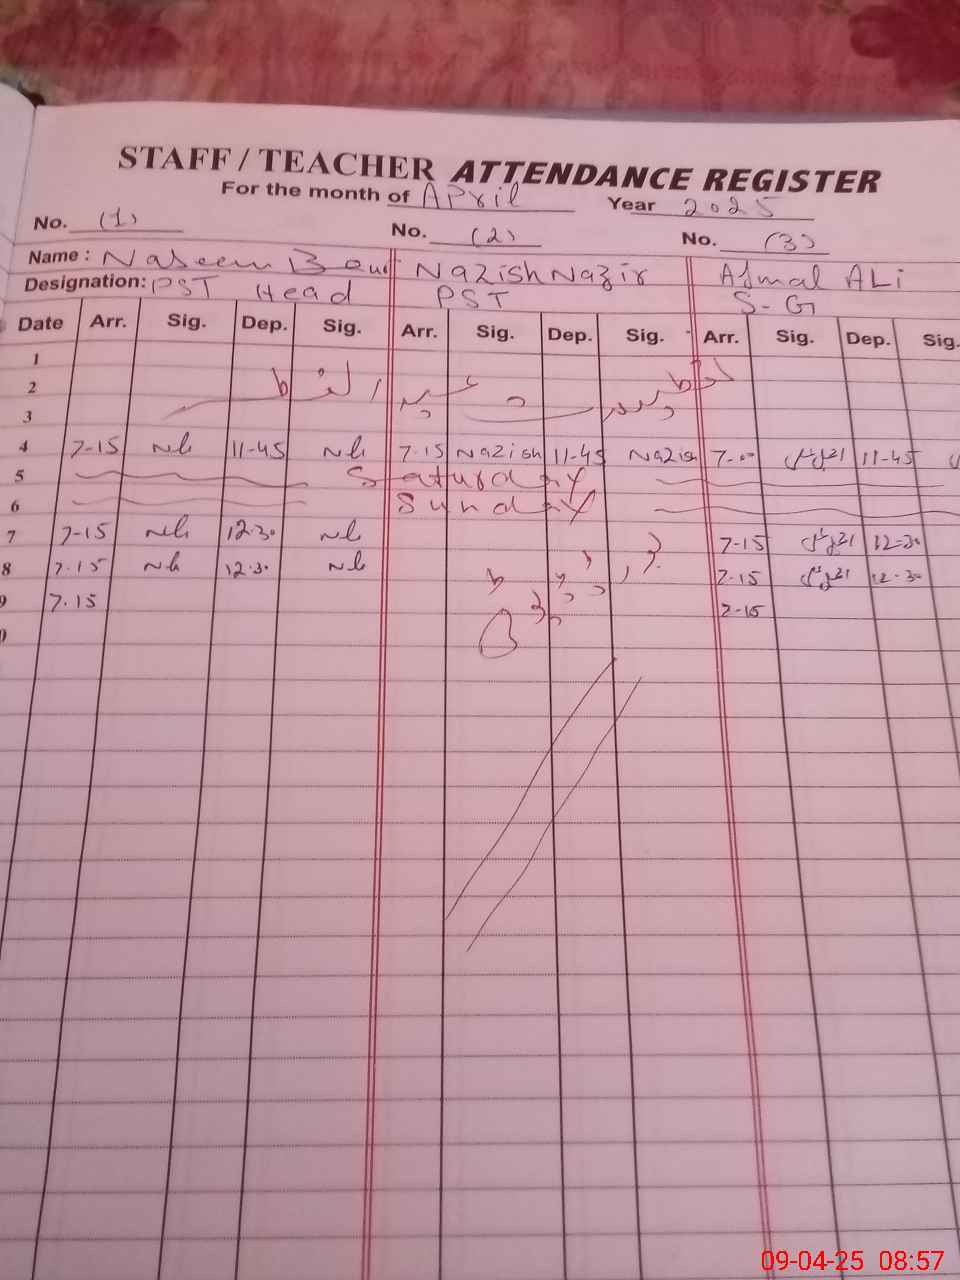 STAFF / TEACHER ATTENDANCE REGISTER
For the month of April Year 2025
No. (1) No. (2) No. (3)
Name : Naseem Nazish Nazir Ajmal ALi
Designation: PST Head PST S-G
Date Arr. Sig. Dep. Sig. Arr. Sig. Dep. Sig. Arr. Sig. Dep. Sig.
1
2 عید الفطر
3
4 7-15 Nb 11-45 Nb 7.15 Nazish 11-45 Nazish 7-00 11-45
5 Saturday
6 Sunday
7 7-15 Nb 12.30 Nb 7-15 12-30
8 7.15 Nb 12.30 Nb 7-15 12-30
9 7.15 7-15
09-04-25 08:57